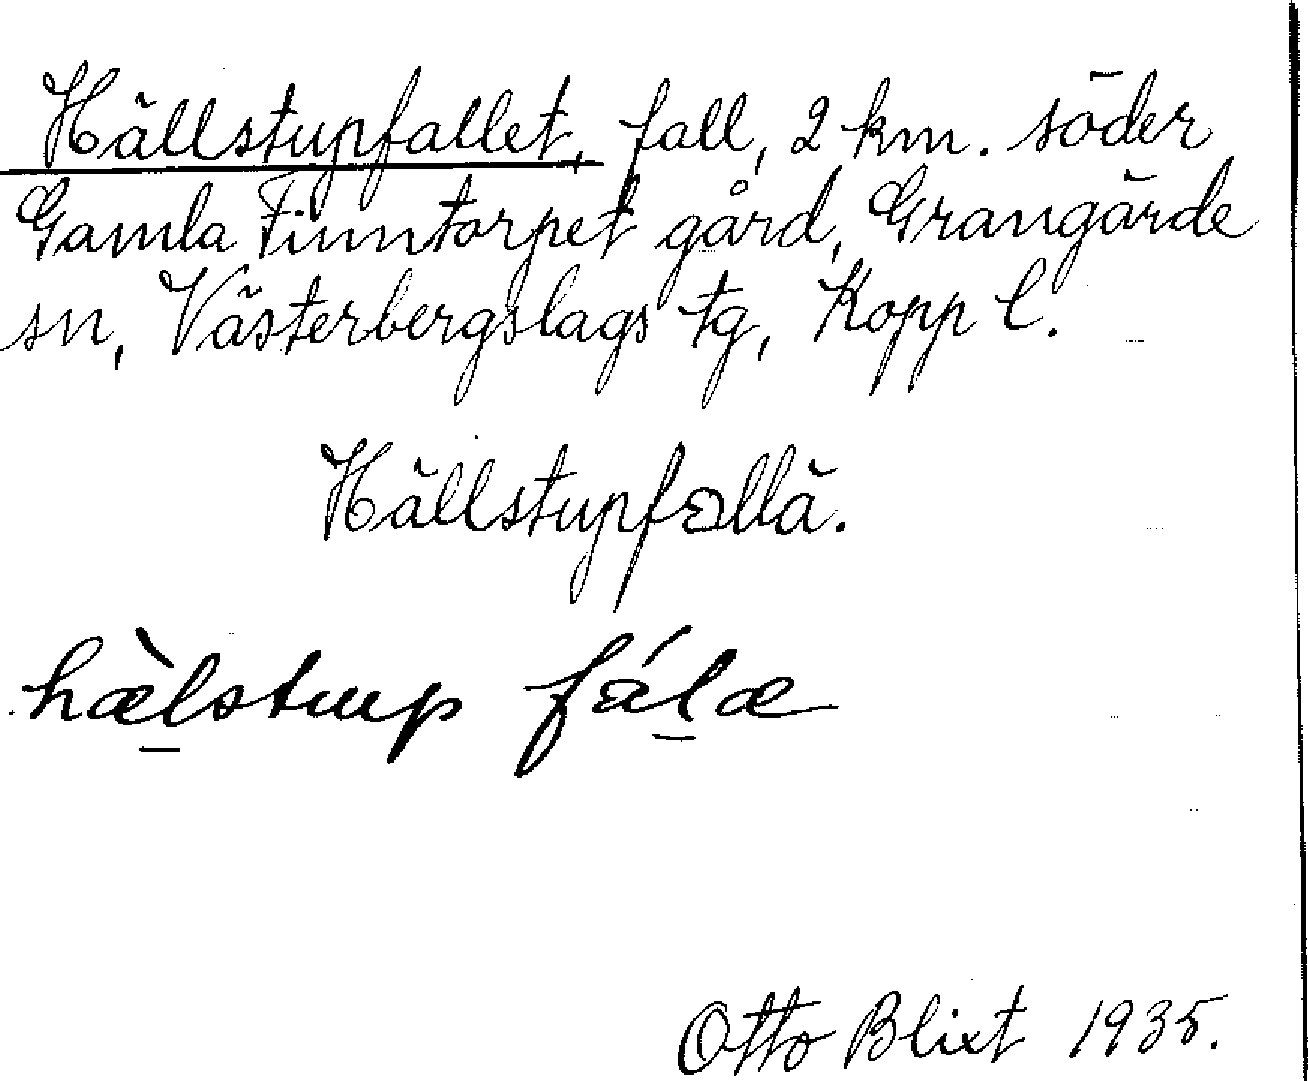 Hällstupfallet, fall, 2 km. söder
Gamla Finntorpet gård, Grangärde
sn, Västerbergslags tg, Kopp l.
Hällstupfallä.
hæ̀lstup fálæ
Otto Blixt 1935.